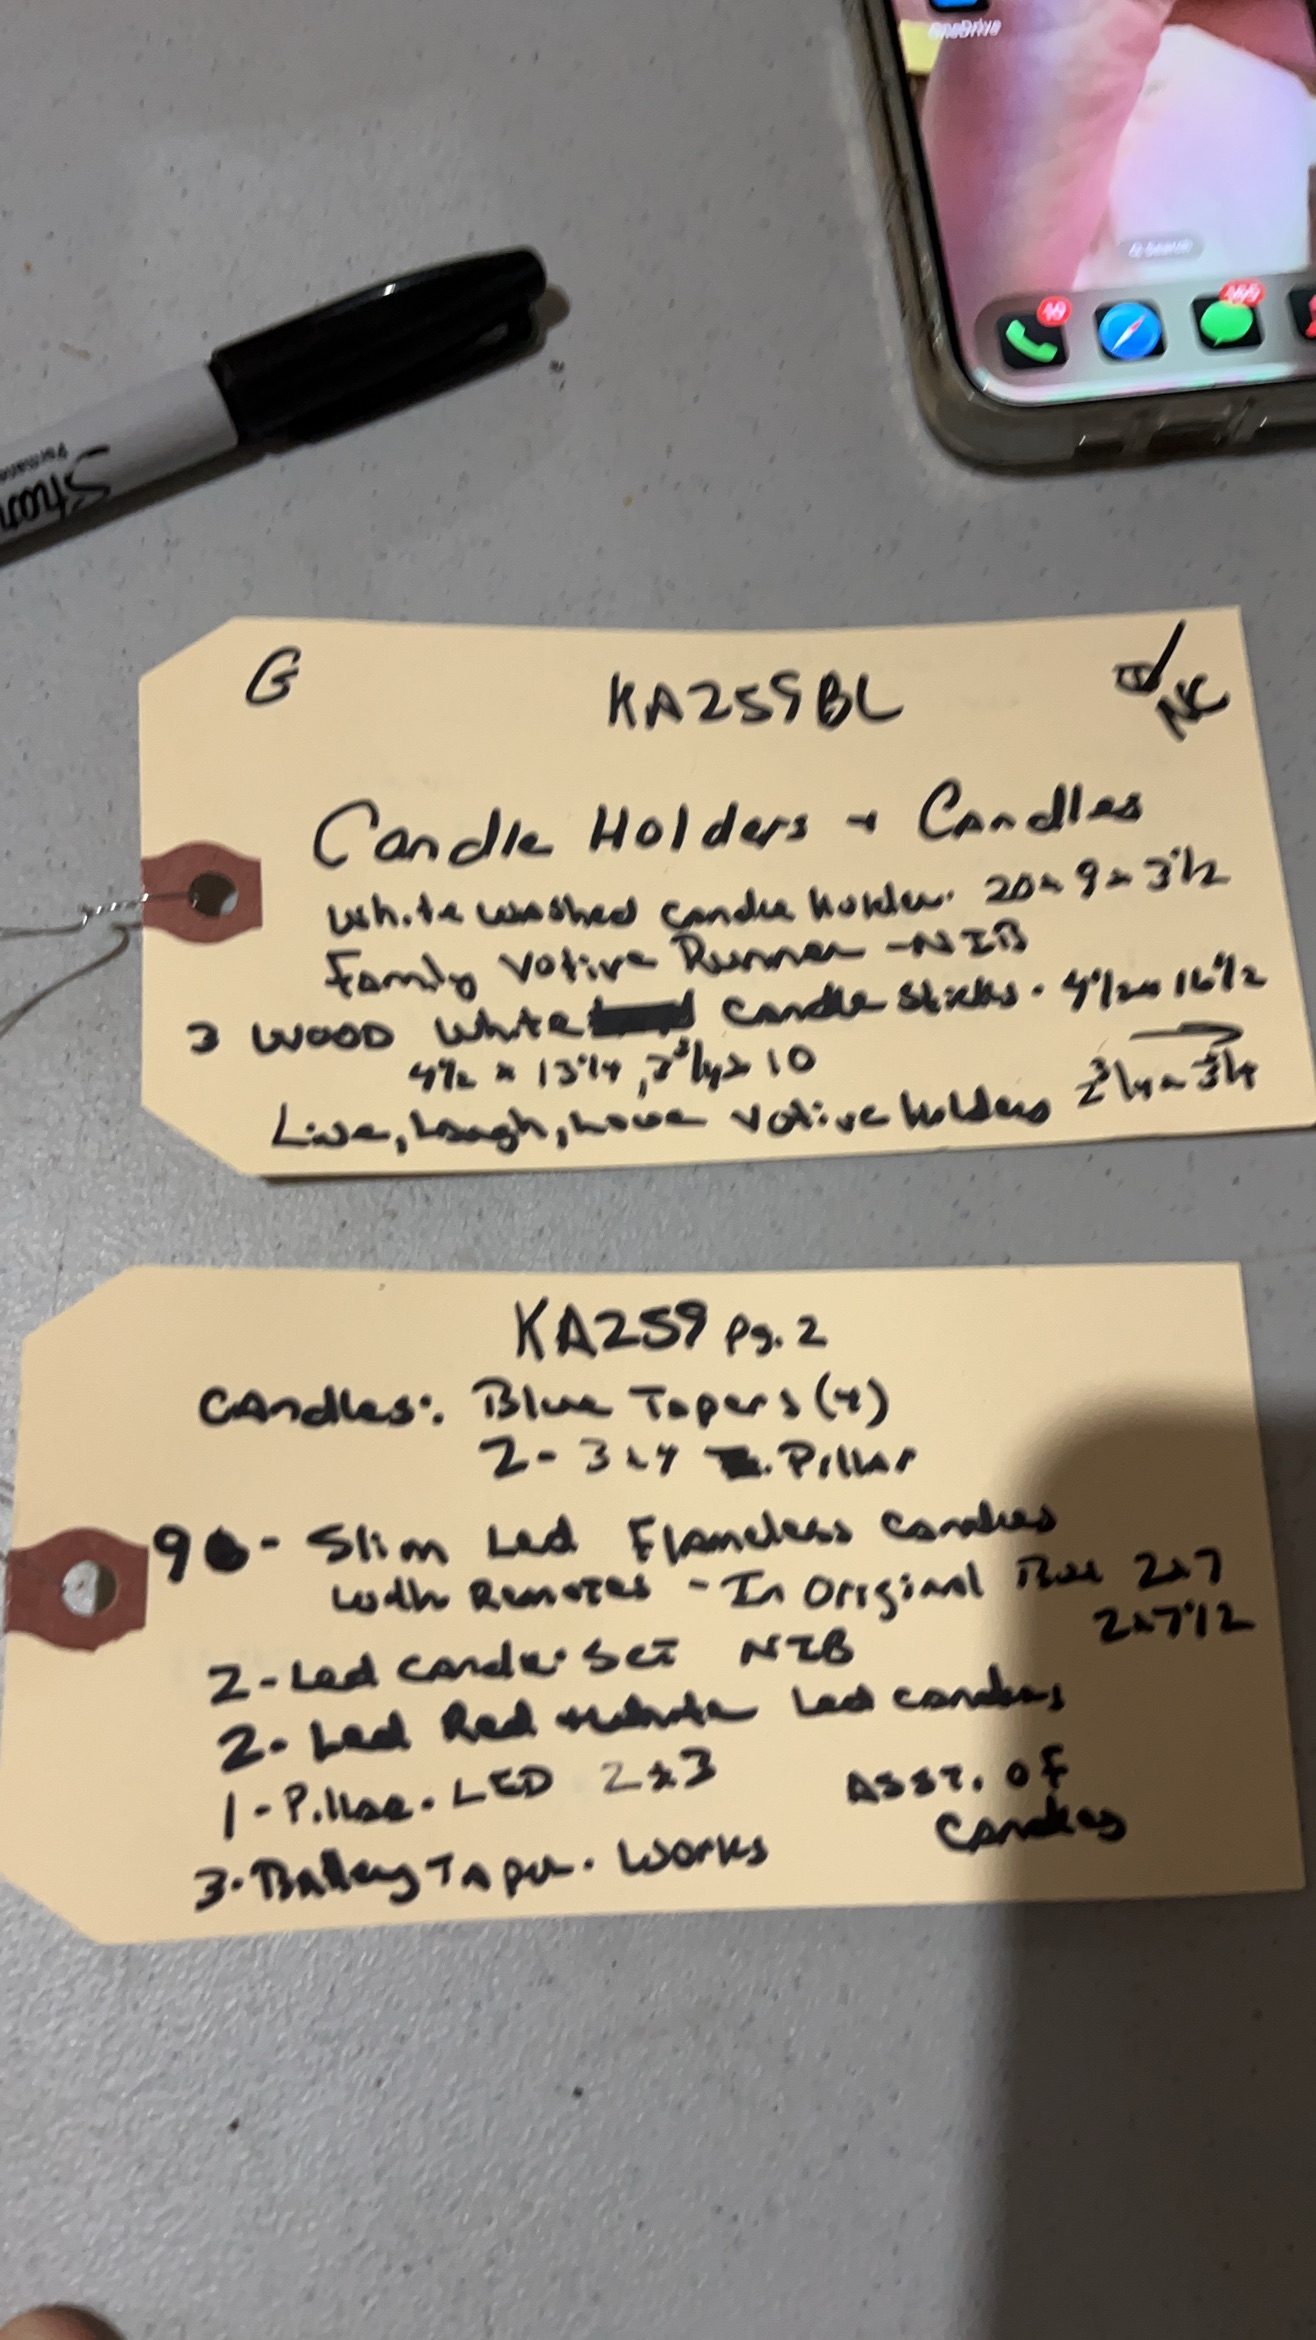 OneDrive
Search
Shar
G
KA259BL
NC
Candle Holders + Candles
White washed candle Holder. 20 x 9 x 3 1/2
Family Votive Runner - NIB
3 WOOD White candle sticks. 4 1/2 x 16 1/2
4 1/2 x 13 1/4, 3 3/4 x 10
Live, Laugh, Love Votive Holders 2 3/4 x 3 1/4
KA259 pg. 2
Candles: Blue Tapers (4)
2 - 3x4 Pillar
9 - Slim Led Flameless Candles
with Remotes - In Original Box 2x7
2x7 1/2
2 - Led candle set NIB
2 - Led Red + white Led candles
1 - Pillar. LED 2x3
Asst. of
Candles
3 - Battery Taper. Works